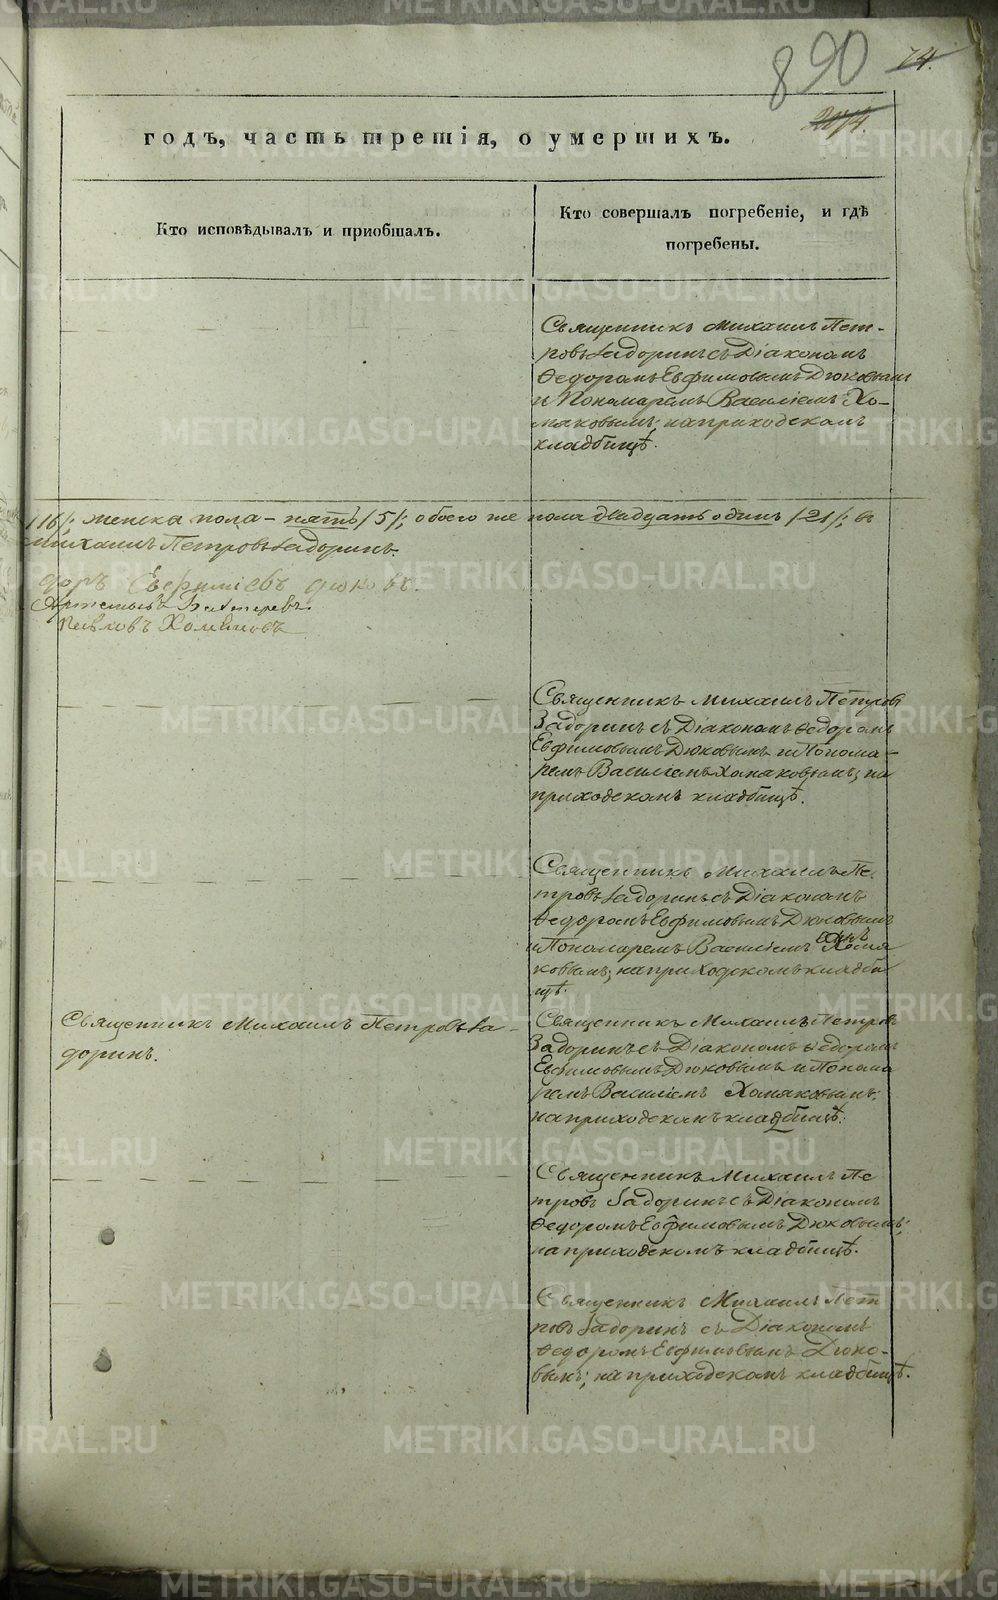 890
74.
годъ, часть третія, о умершихъ.
Кто исповѣдывалъ и пріобщалъ.
Кто совершалъ погребеніе, и гдѣ
погребены.
Священникъ Михаилъ Пет-
ровъ Задоринъ съ Діакономъ
Ѳедоромъ Евфимовымъ Дюковымъ
и Пономаремъ Василіемъ Хо-
мяковымъ, на приходскомъ
кладбищѣ.
/16/; женска пола – пять /5/; обоего же пола двадцать одинъ /21/; въ
Михаилъ Петровъ Задоринъ.
доръ Евфиміевъ Дюковъ.
Артемьевъ
Хомяковъ
Священникъ Михаилъ Петровъ
Задоринъ съ Діакономъ Ѳедоромъ
Евфимовымъ Дюковымъ и Понома-
ремъ Василіемъ Хомяковымъ; на
приходскомъ кладбищѣ.
Священникъ Михаилъ Пе-
тровъ Задоринъ съ Діакономъ
Ѳедоромъ Евфимовымъ Дюковымъ
и Пономаремъ Василіемъ Хомя
ковымъ; на приходскомъ кладби
щѣ.
Священникъ Михаилъ Петровъ За-
доринъ.
Священникъ Михаилъ Петровъ
Задоринъ съ Діакономъ Ѳедоромъ
Евфимовымъ Дюковымъ и Понома
ремъ Василіемъ Хомяковымъ;
на приходскомъ кладбищѣ.
Священникъ Михаилъ Пе
тровъ Задоринъ съ Діакономъ
Ѳедоромъ Евфимовымъ Дюковымъ;
на приходскомъ кладбищѣ.
Священникъ Михаилъ Пет
ровъ Задоринъ съ Діакономъ
Ѳедоромъ Евфимовымъ Дюко-
вымъ; на приходскомъ кладбищѣ.
METRIKI.GASO-URAL.RU